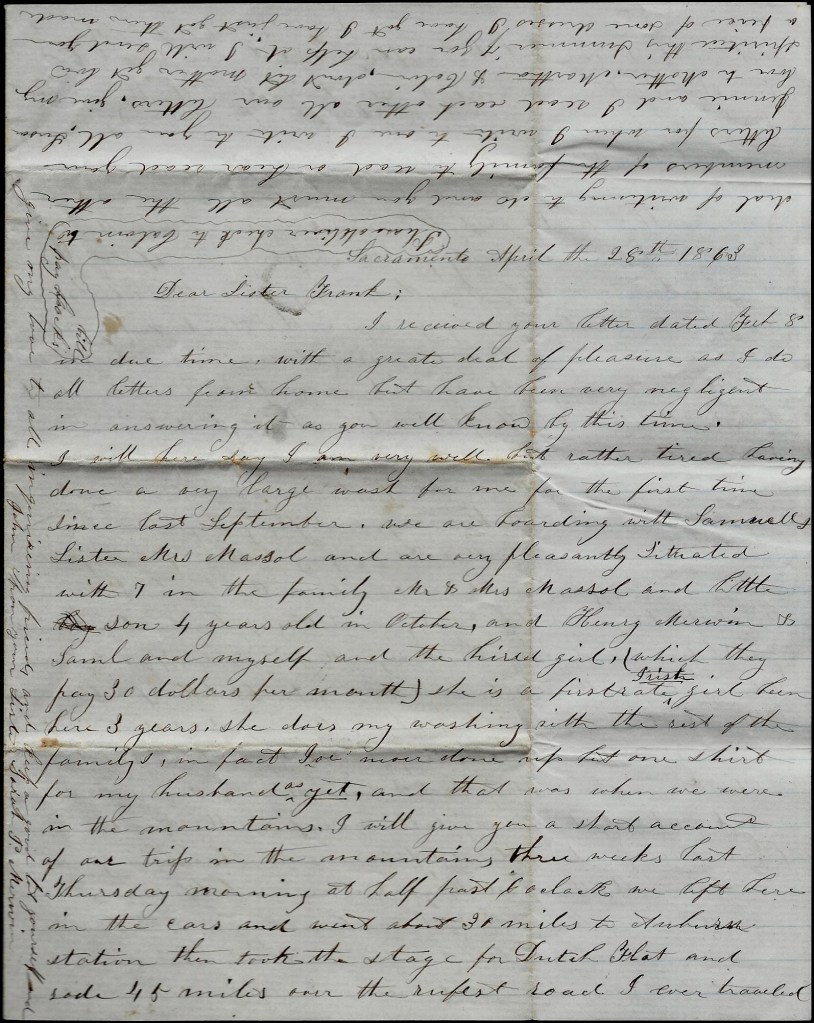 Sacramento April the 28th 1863
Dear Sister Frank;
I received your letter dated Feb 8
in due time. with a great deal of pleasure as I do
all letters from home but have been very negligent
in answering it as you well know by this time.
I will here say I am very well but rather tired having
done a very large wash for me for the first time
since last September. we are boarding with Samuells
Sister Mrs Massol and are very pleasantly Situated
with 7 in the family Mr & Mrs Massol and little
son 4 years old in October, and Henry Merwin &
Saml and myself and the hired girl, (which they
pay 30 dollars per month) she is a firstrate Irish girl been
here 3 years. she does my washing with the rest of the
familys, in fact I've never done up but one shirt
for my husband as yet, and that was when we were
in the mountains. I will give you a short account
of our trip in the mountains, three weeks last
Thursday morning at half past 6 oclock we left here
in the cars and went about 30 miles to Auburn
station then took the stage for Dutch Flat and
rode 45 miles over the rufest road I ever traveled
deal of writing to do and you must all the other
members of the family to read or hear read your
letters for when I write to one I write to you all,
Jennie and I read each other all our letters, give my
love to Mother, Martha & Calvin, dont let Mother get low
spirited this Summer if you can help it, I will send you
a piece of some dresses I have got I have just got them made
I have deliver check to Calvin to
pay Sacks
bill
give my love to all inquireing friends and keep a good lot yourself and
John from your Sister Sariah P. Merwin